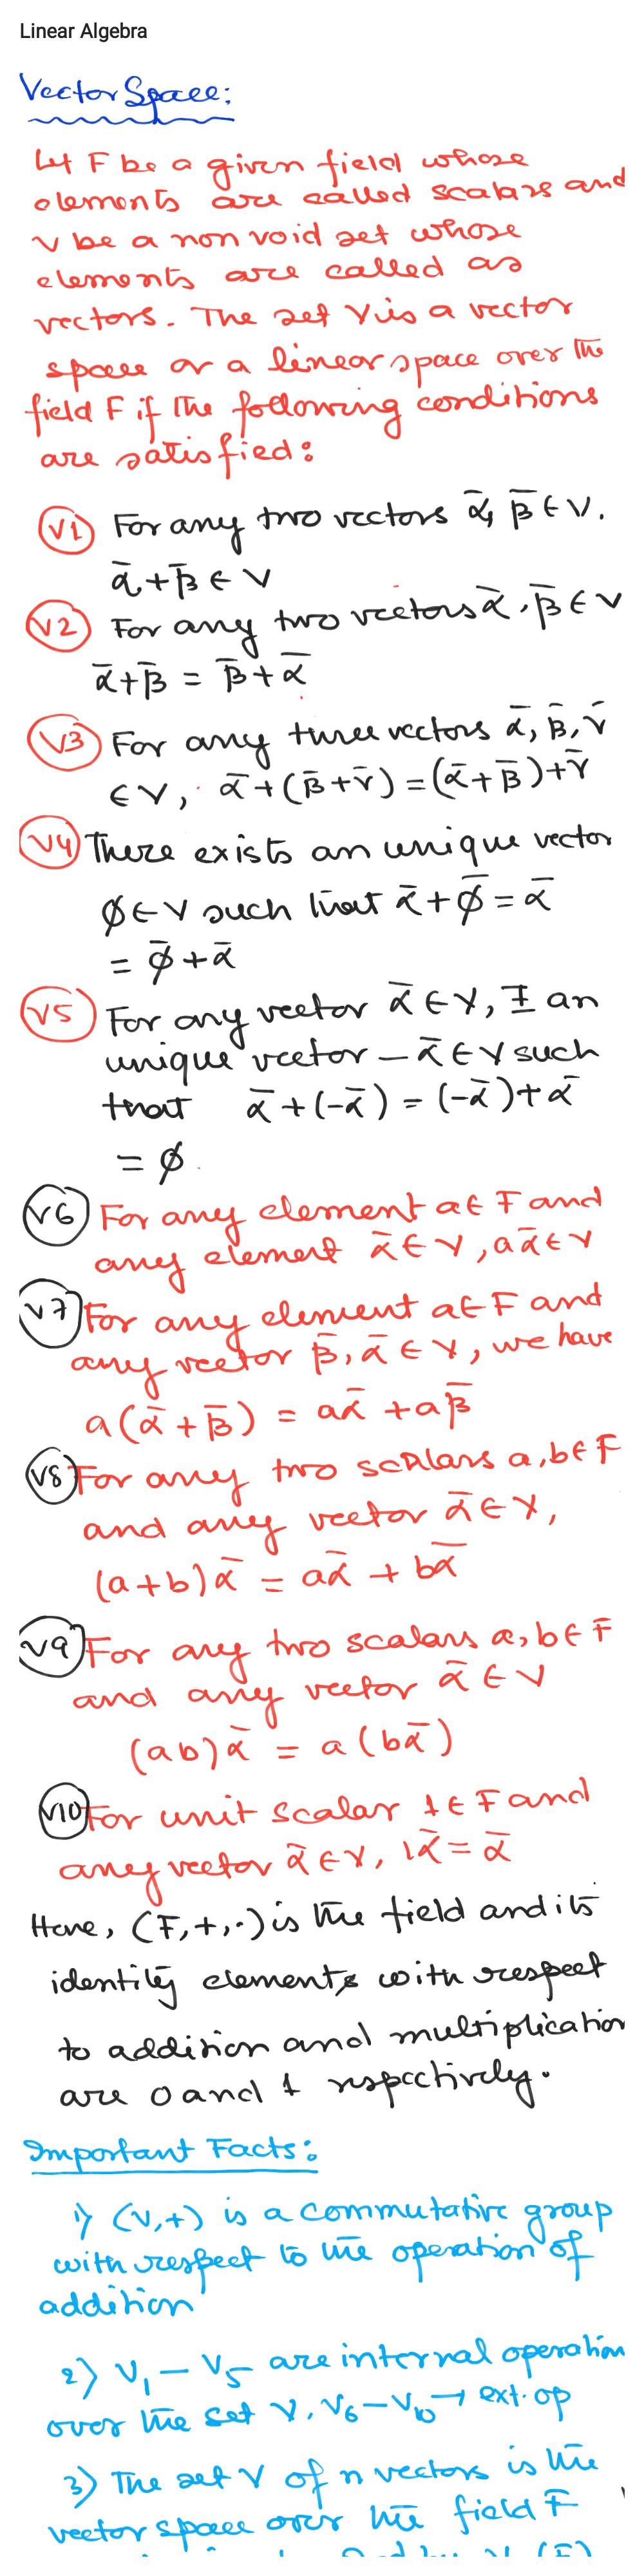 Linear Algebra
Vector Space:
Let F be a given field whose
elements are called scalars and
V be a non void set whose
elements are called as
vectors. The set V is a vector
space or a linear space over the
field F if the following conditions
are satisfied:
V1 For any two vectors ᾱ, β̄ ∈ V.
ᾱ+β̄ ∈ V
V2 For any two vectors ᾱ, β̄ ∈ V
ᾱ+β̄ = β̄+ᾱ
V3 For any three vectors ᾱ, β̄, γ̄
∈ V, ᾱ+(β̄+γ̄) = (ᾱ+β̄)+γ̄
V4 There exists an unique vector
ϕ ∈ V such that ᾱ+ϕ̄ = ᾱ
= ϕ̄+ᾱ
V5 For any vector ᾱ ∈ V, ∃ an
unique vector -ᾱ ∈ V such
that ᾱ+(-ᾱ) = (-ᾱ)+ᾱ
= ϕ
V6 For any element a ∈ F and
any element ᾱ ∈ V, aᾱ ∈ V
V7 For any element a ∈ F and
any vector β̄, ᾱ ∈ V, we have
a(ᾱ+β̄) = aᾱ + aβ̄
V8 For any two scalars a, b ∈ F
and any vector ᾱ ∈ V,
(a+b)ᾱ = aᾱ + bᾱ
V9 For any two scalars a, b ∈ F
and any vector ᾱ ∈ V
(ab)ᾱ = a(bᾱ)
V10 For unit scalar 1 ∈ F and
any vector ᾱ ∈ V, 1ᾱ = ᾱ
Here, (F,+,·) is the field and its
identity elements with respect
to addition and multiplication
are 0 and 1 respectively.
Important Facts:
1) (V,+) is a commutative group
with respect to the operation of
addition
2) V₁ – V₅ are internal operation
over the set V. V₆ – V₁₀ → ext. op
3) The set V of n vectors is the
vector space over the field F